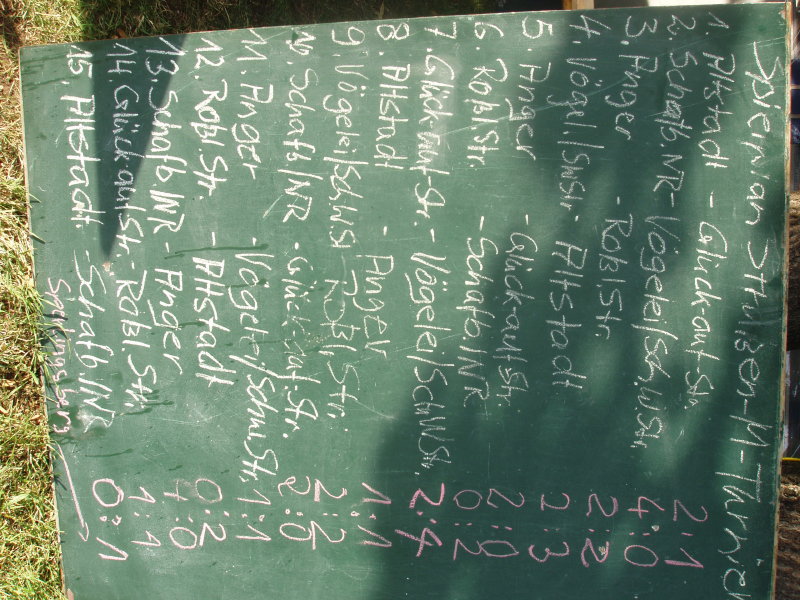 Spielplan Straßen-M-Turnier
1. Altstadt - Glück-auf-Str. 2:1
2. Schafb. NR - Vögelei/Sch.W.Str. 4:0
3. Anger - Robl.Str. 2:2
4. Vögel./SWStr. - Altstadt 1:3
5. Anger - Glück-auf-Str. 2:0
6. Robl.Str. - Schafb./NR 0:2
7. Glück-auf-Str. - Vögelei/SchW.Str. 2:4
8. Altstadt - Anger 1:1
9. Vögelei/SchWStr. - Robl.Str. 2:2
10. Schafb/NR - Glück-auf Str. 2:0
11. Anger - Vögelei/Schw.Str. 1:1
12. Robl.Str. - Altstadt 0:2
13. Schafb./NR - Anger 4:0
14. Glück auf Str. - Robl.Str. 1:1
15. Altstadt - Schafb./NR 0:1